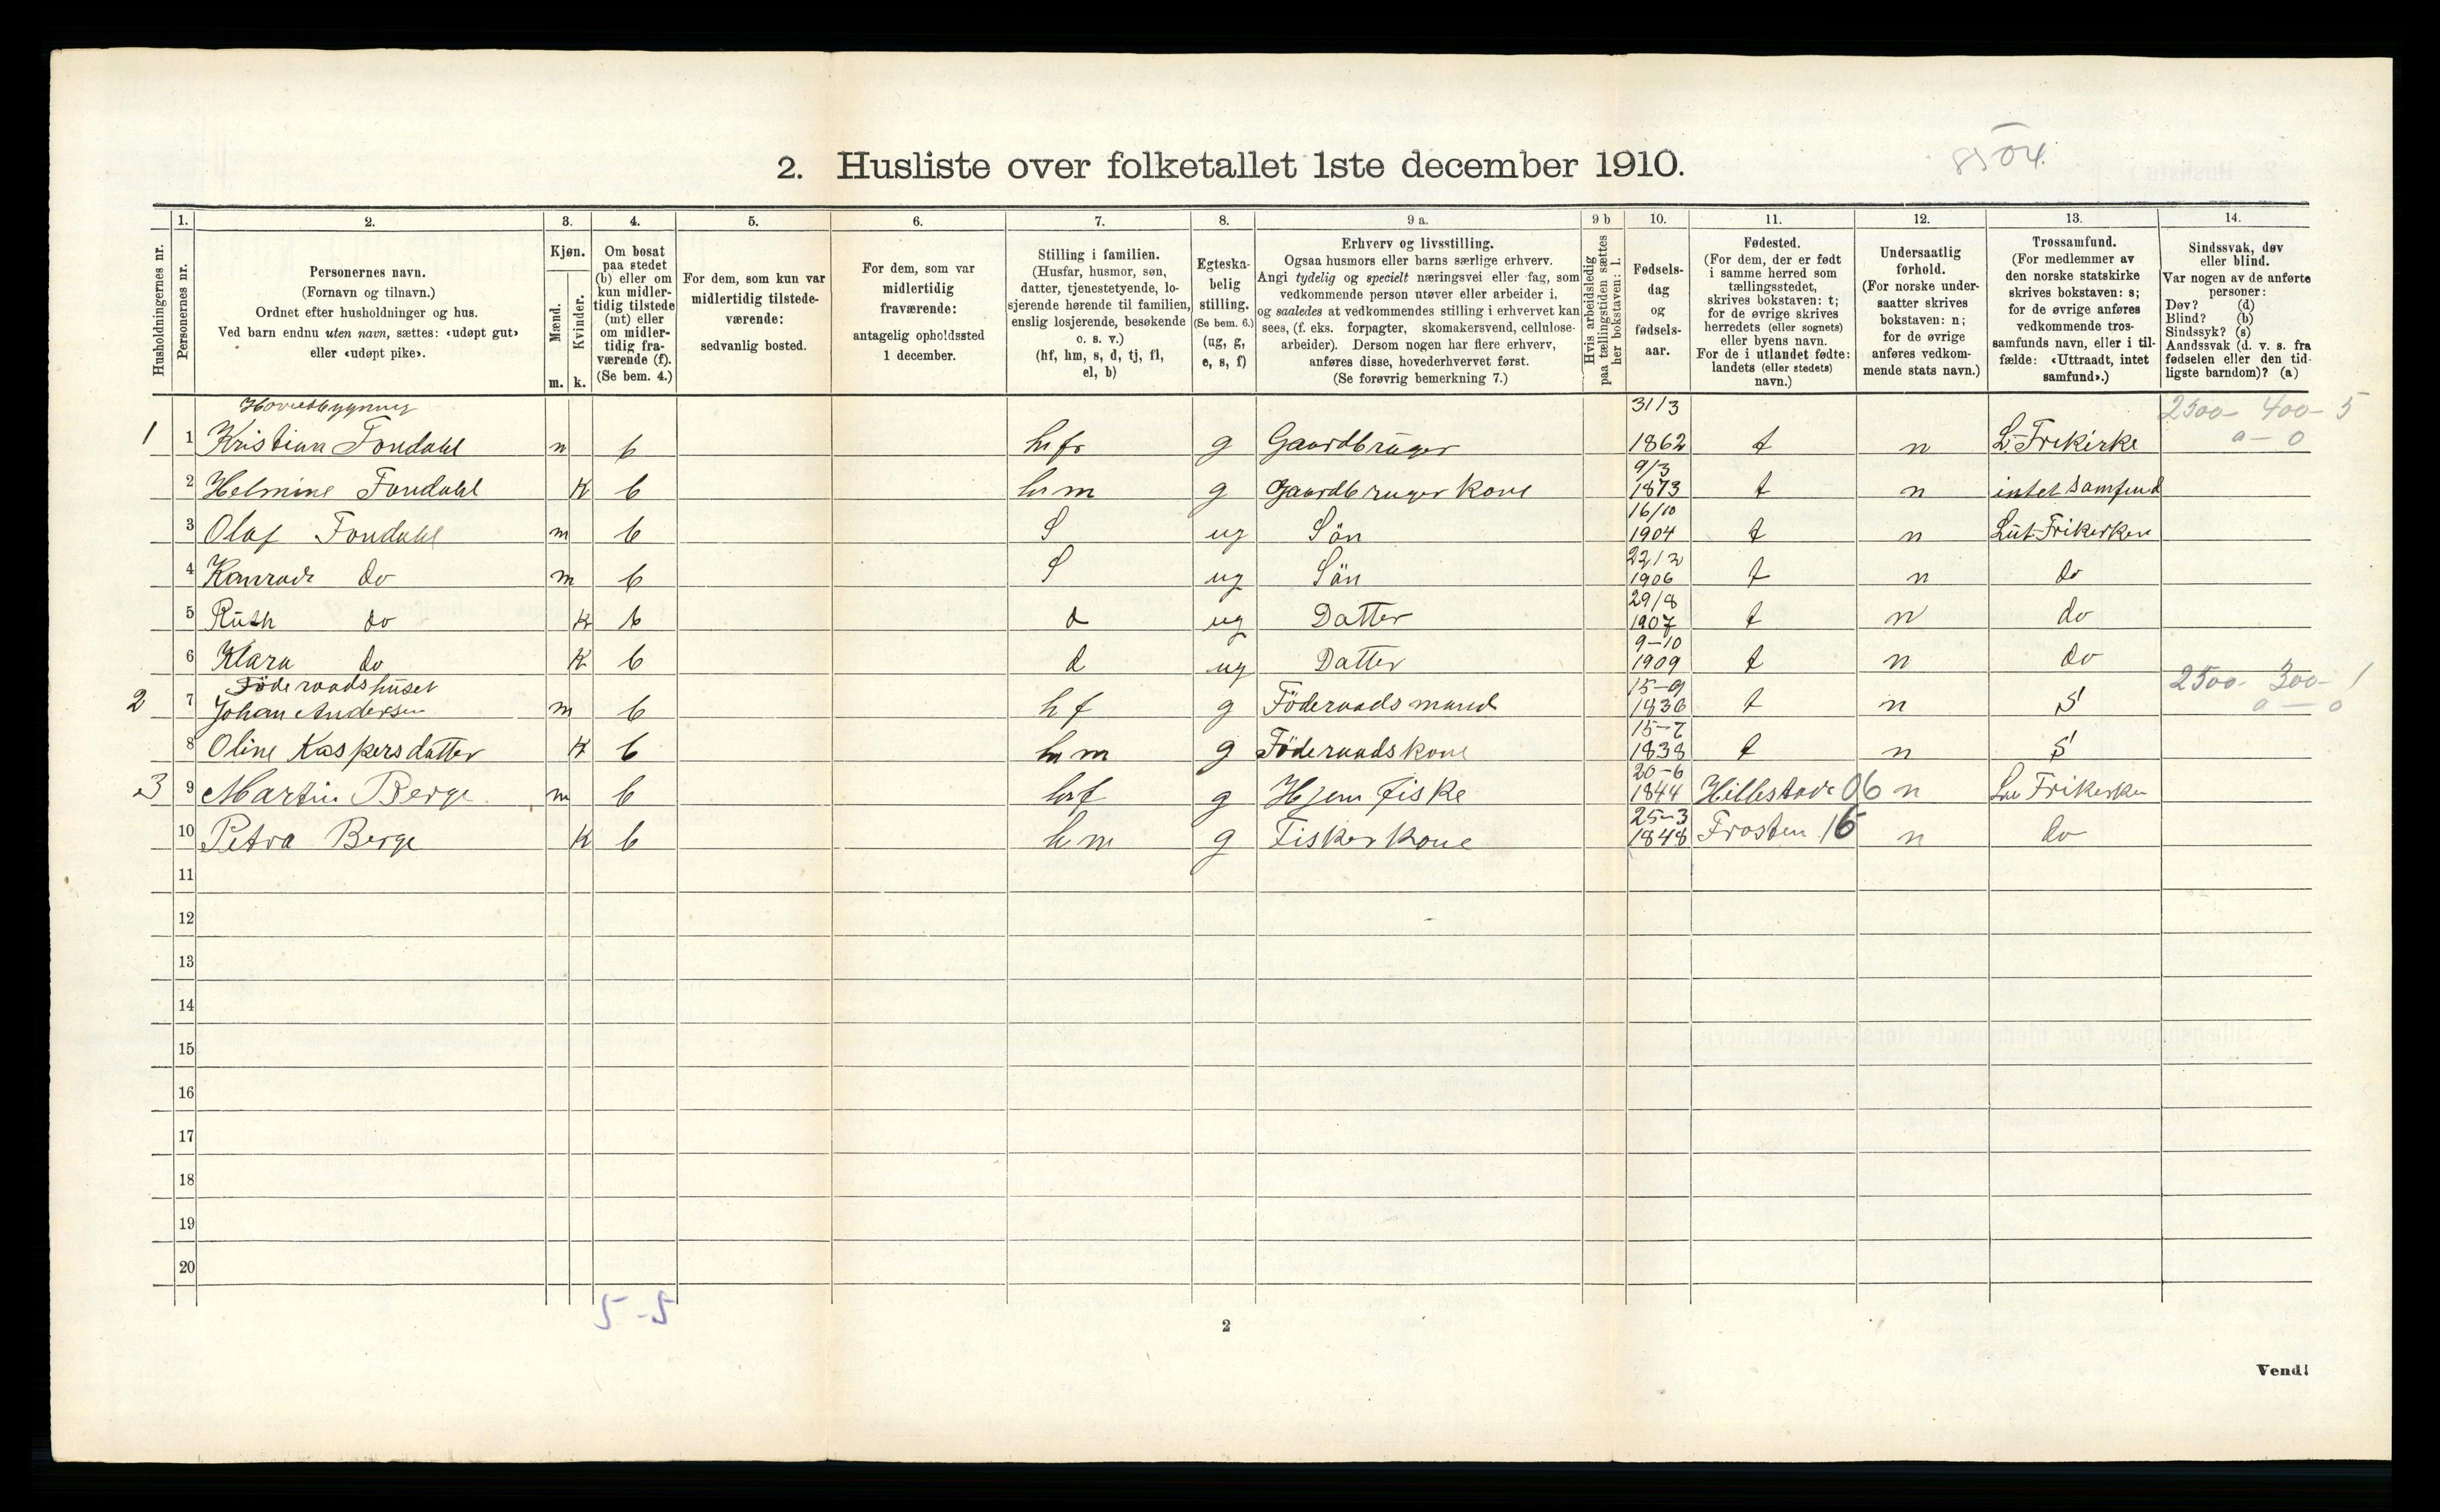 2. Husliste over folketallet 1ste december 1910.
8504.
1. 2. 3. 4. 5. 6. 7. 8. 9 a. 9 b 10. 11. 12. 13. 14.
Husholdningernes nr.
Personernes nr.
Personernes navn.
(Fornavn og tilnavn.)
Ordnet efter husholdninger og hus.
Ved barn endnu uten navn, sættes: «udøpt gut»
eller «udøpt pike».
Kjøn.
Mænd.
Kvinder.
m. k.
Om bosat
paa stedet
(b) eller om
kun midler-
tidig tilstede
(mt) eller
om midler-
tidig fra-
værende (f).
(Se bem. 4.)
For dem, som kun var
midlertidig tilstede-
værende:
sedvanlig bosted.
For dem, som var
midlertidig
fraværende:
antagelig opholdssted
1 december.
Stilling i familien.
(Husfar, husmor, søn,
datter, tjenestetyende, lo-
sjerende hørende til familien,
enslig losjerende, besøkende
o. s. v.)
(hf, hm, s, d, tj, fl,
el, b)
Egteska-
belig
stilling.
(Se bem. 6.)
(ug, g,
e, s, f)
Erhverv og livsstilling.
Ogsaa husmors eller barns særlige erhverv.
Angi tydelig og specielt næringsvei eller fag, som
vedkommende person utøver eller arbeider i,
og saaledes at vedkommendes stilling i erhvervet kan
sees, (f. eks. forpagter, skomakersvend, cellulose-
arbeider). Dersom nogen har flere erhverv,
anføres disse, hovederhvervet først.
(Se forøvrig bemerkning 7.)
Hvis arbeidsledig
paa tællingstiden sættes
her bokstaven: l.
Fødsels-
dag
og
fødsels-
aar.
Fødested.
(For dem, der er født
i samme herred som
tællingsstedet,
skrives bokstaven: t;
for de øvrige skrives
herredets (eller sognets)
eller byens navn.
For de i utlandet fødte:
landets (eller stedets)
navn.)
Undersaatlig
forhold.
(For norske under-
saatter skrives
bokstaven: n;
for de øvrige
anføres vedkom-
mende stats navn.)
Trossamfund.
(For medlemmer av
den norske statskirke
skrives bokstaven: s;
for de øvrige anføres
vedkommende tros-
samfunds navn, eller i til-
fælde: «Uttraadt, intet
samfund».)
Sindssvak, døv
eller blind.
Var nogen av de anførte
personer:
Døv? (d)
Blind? (b)
Sindssyk? (s)
Aandssvak (d. v. s. fra
fødselen eller den tid-
ligste barndom)? (a)
Hovedbygning 31/3 2500- 400- 5
1 1 Kristian Fondahl m b hfr g Gaardbruger 1862 t n L. Frekirke a - 0
9/3
2 Helmine Fondahl K b hm g gaardbruger kone 1873 t n intet samfund
16/10
3 Olaf Fondahl m b S ug Sön 1904 t n Lut Frikerken
22/2
4 Konrad do m b S ug Sön 1906 t n do
29/8
5 Ruth do K b d ug Datter 1907 t n do
9-10
6 Klara do K b d ug Datter 1909 t n do
Föderaadshuset 15-9 2500- 300- 1
2 7 Johan Andersen m b hf g Föderaadsmand 1836 t n S a - 0
15-7
8 Oline Kaspersdatter K b hm g Föderaadskone 1838 t n S
20-6
3 9 Martin Berge m b hf g Hjem fiske 1844 Hillestad 06 n Lu Frikerken
25-3
10 Petra Berge K b hm g Fiskerkone 1848 Frosten 16 n do
11
12
13
14
15
16
17
18
19
20
5-5
2
Vend!